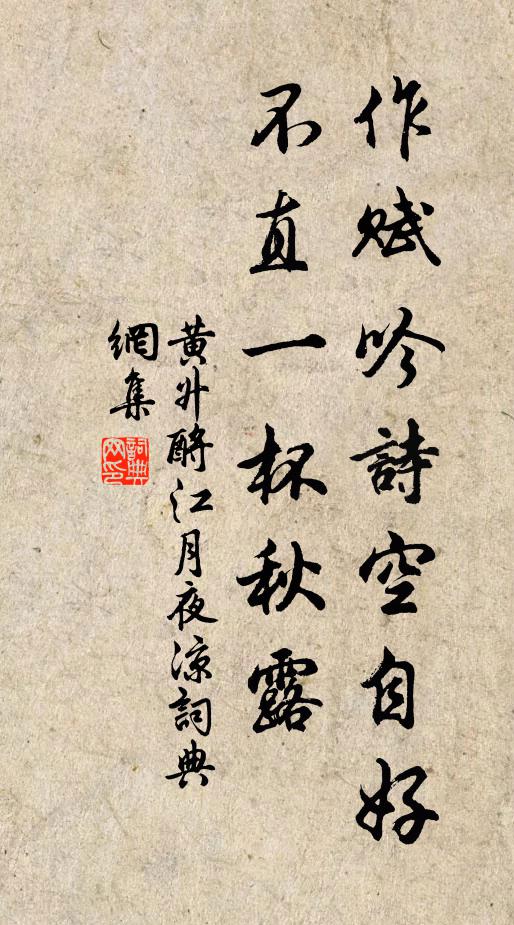 作賦吟詩空自好
不直一杯秋露
黃升酹江月夜涼詞典
網集
詞典網印